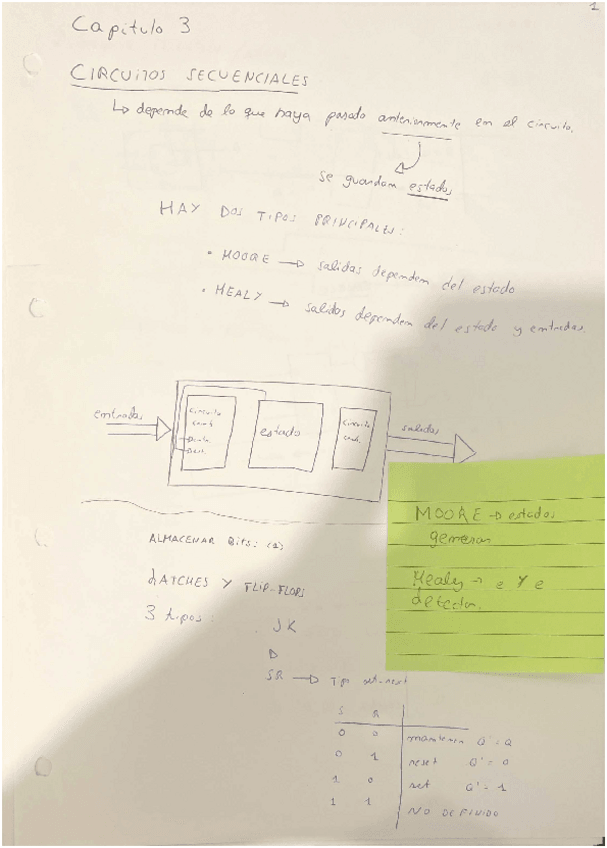 1
Capitulo 3
CIRCUITOS SECUENCIALES
↳ depende de lo que haya pasado anteriormente en el circuito.
se guardan estados
HAY DOS TIPOS PRINCIPALES:
• MOORE → salidas dependem del estado
• MEALY → salidas dependem del estado y entradas.
entradas
circuito
comb.
estado
circuito
comb.
salidas
MOORE → estados
generan
Mealy → e y e
detectan.
ALMACENAR BITS:
LATCHES Y FLIP-FLOPS
3 tipos:
JK
D
SR → Tipo set-reset
S R
0 0 mantener Q' = Q
0 1 reset Q' = 0
1 0 set Q' = 1
1 1 NO DEFINIDO